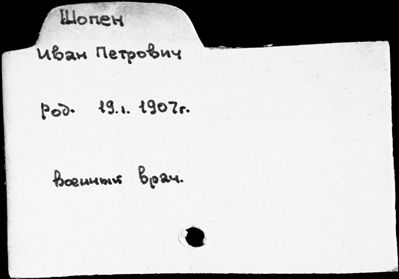 Шопен
Иван Петрович
Род. 19.1. 1907г.
Военный врач.